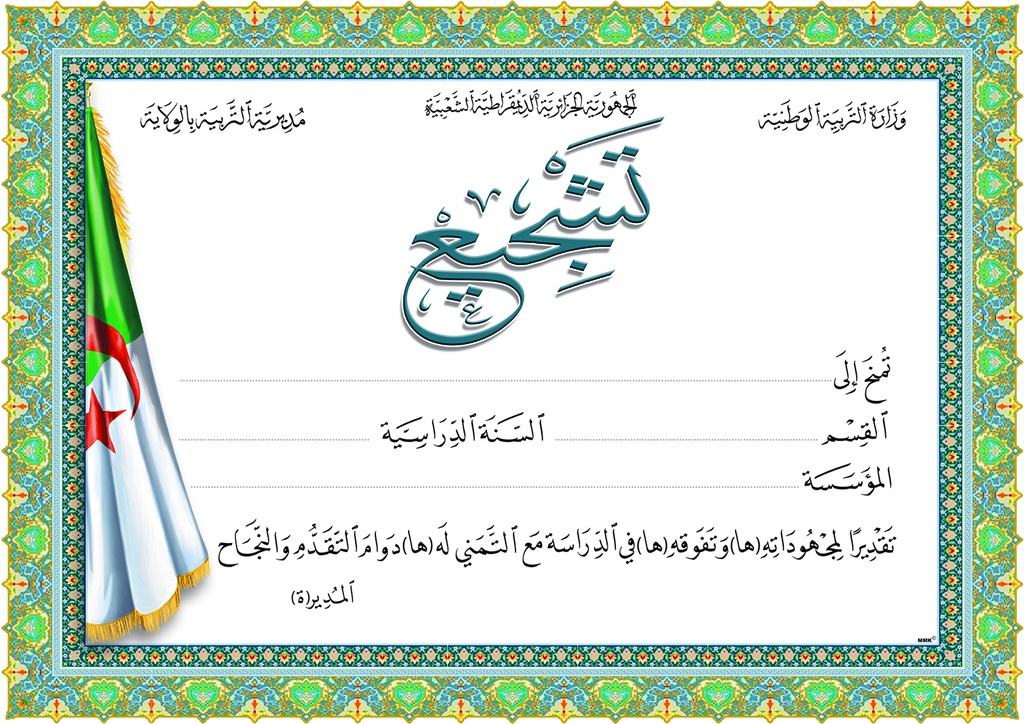 الجمهورية الجزائرية الديمقراطية الشعبية
وَزَارَة التَّربِيَة الوَطَنِيَّة
مُديريَّة التَّربية بالولاية
تَشْجِيعْ
تُمنَحَ إلَى
القِسْم السَّنَة الدِّرَاسِيَّة
المؤَسَسَة
تَقدِيرًا لِمجْهُودَاتِهِ(ها) وَتَفَوقهِ(ها) في الدِّرَاسَة مَع التَّمَني لَه(ها) دوَامَ التَّقَدُّمِ وَالنَّجَاح
المُدِير(ة)
MMK©